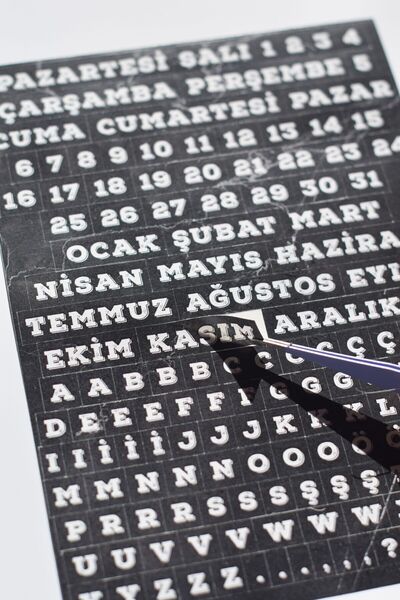 PAZARTESİ SALI 1 2 3 4
ÇARŞAMBA PERŞEMBE 5
CUMA CUMARTESİ PAZAR
6 7 8 9 10 11 12 13 14 15
16 17 18 19 20 21 22 23 24
25 26 27 28 29 30 31
OCAK ŞUBAT MART
NİSAN MAYIS HAZİRA
TEMMUZ AĞUSTOS EYL
EKİM KASIM ARALIK
A A B B B C C C Ç Ç
D E E E F F G G G
I I İ İ J J K K K L
M M N N N O O O Ö
P R R R S S S Ş Ş Ş
U U V V V W W W
Y Z Z Z . . , , . ?